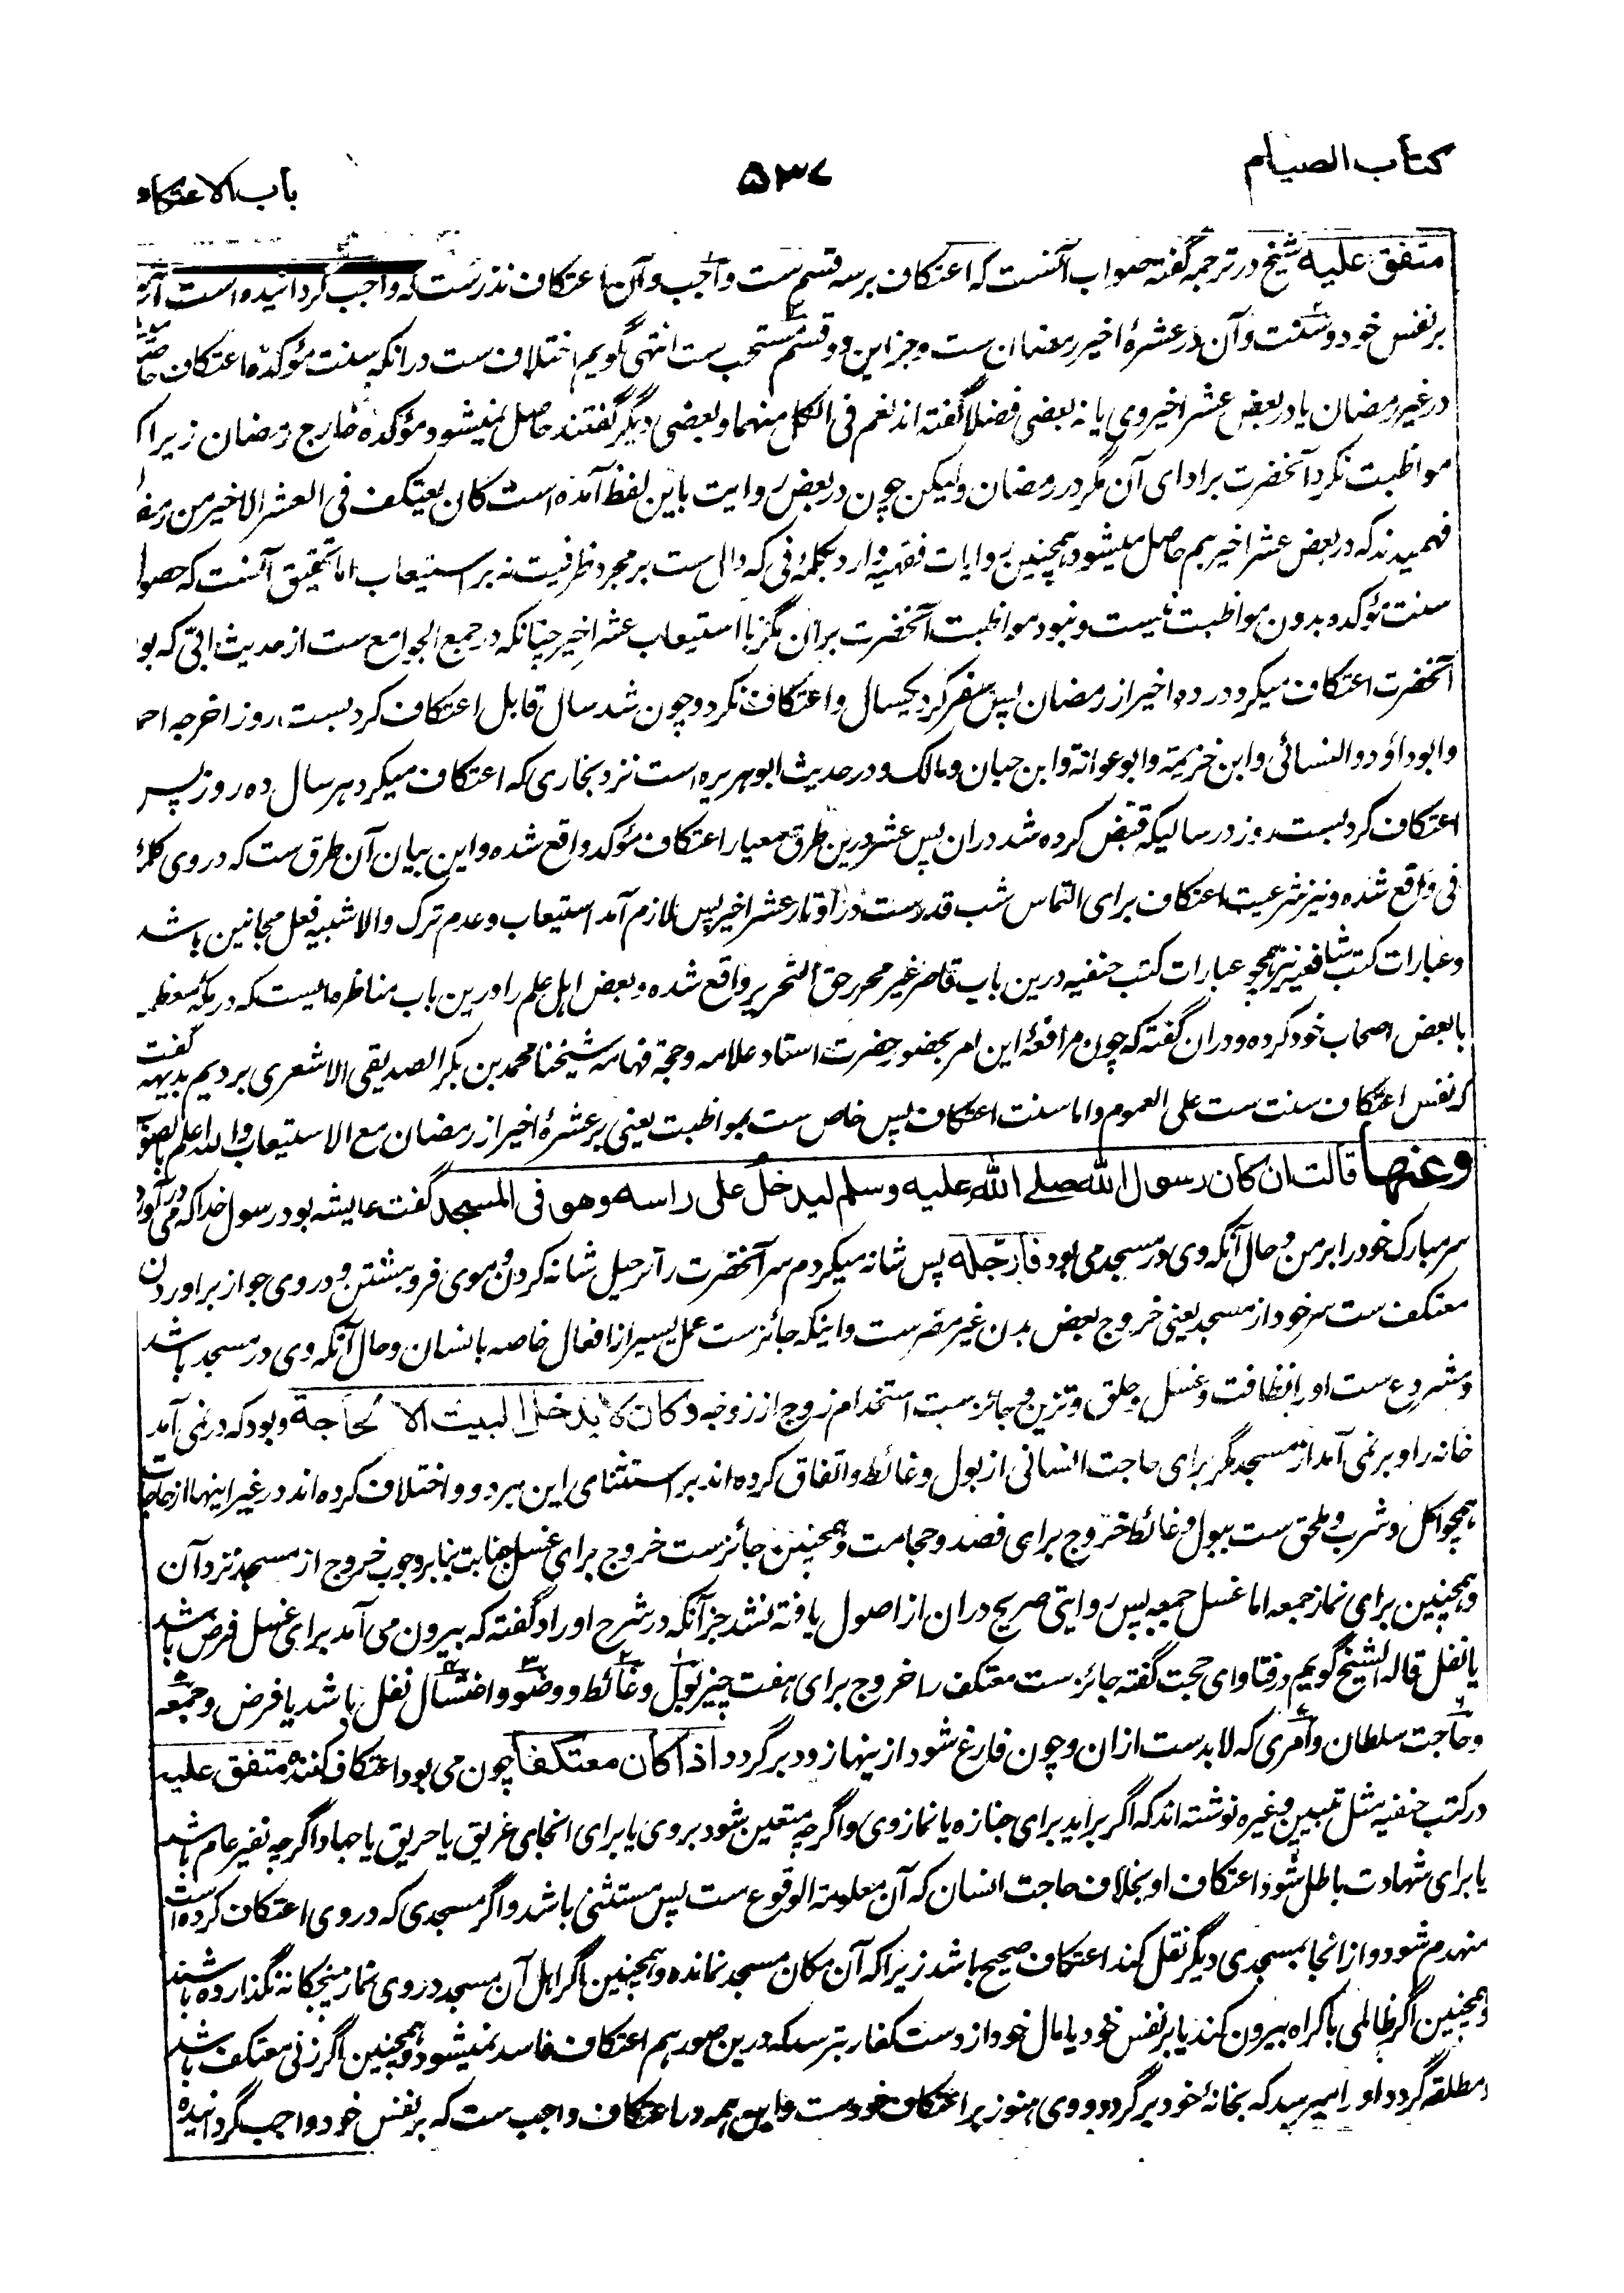 کتاب الصیام
۵۳۷
باب الاعتکاف
متفق علیه شیخ در ترجمه گفته صواب آنست که اعتکاف بر سه قسم ست واجب و آن اعتکاف نذرست که واجب گردانیده است آنرا
بر نفس خود و سنت و آن در عشرهٔ اخیر رمضان ست و جز این دو قسم مستحب ست انتهی گویم اختلاف ست در آنکه سنت مؤکده اعتکاف حاصل
در غیر رمضان یا در بعض عشر اخیر وی یا نه بعضی فضلا گفته اند نعم فی الکل منهما و بعضی دیگر گفتند حاصل نمیشود مؤکده خارج رمضان زیراکه
مواظبت نکرد آنحضرت بر ادای آن مگر در رمضان و لیکن چون در بعض روایت باین لفظ آمده است کان یعتکف فی العشر الاخیر من رمضان
فهمیدند که در بعض عشر اخیر هم حاصل میشود و همچنین روایات فقهیه وارد بکلمهٔ فی که دال ست بر مجرد ظرفیت نه بر استیعاب اما تحقیق آنست که حصول
سنت مؤکده بدون مواظبت نیست و نبود مواظبت آنحضرت بر آن مگر با استیعاب عشر اخیر چنانکه در جمع الجوامع ست از حدیث ابی که بود
آنحضرت اعتکاف میکرد در ده اخیر از رمضان پس سفر کرد یکسال و اعتکاف نکرد و چون شد سال قابل اعتکاف کرد بست روز اخرجه احمد
و ابوداؤد والنسائی و ابن خزیمة و ابو عوانة و ابن حبان و مالک و در حدیث ابو هریره است نزد بخاری که اعتکاف میکرد هر سال ده روز پس
اعتکاف کرد بست روز در سالیکه قبض کرده شد در ان پس عشر درین طرق معیار اعتکاف مؤکد واقع شده و این بیان آن طرق ست که در وی کلمهٔ
فی واقع شده و نیز شرعیت اعتکاف برای التماس شب قدرست در اوتار عشر اخیر پس لازم آمد استیعاب و عدم ترک والا شبیه فعل مجانین باشد
و عبارات کتب شافعیه نیز همچو عبارات کتب حنفیه درین باب قاصر غیر محرر حق التحریر واقع شده و بعض اهل علم را درین باب مناظره ایست که در مکهٔ معظمه
با بعض اصحاب خود کرده و در ان گفته که چون مرافعهٔ این امر بحضور حضرت استاد علامه و حجة فهامه شیخنا محمد بن بکر الصدیقی الاشعری بردیم بدیهه گفت
که نفس اعتکاف سنت ست علی العموم و اما سنت اعتکاف پس خاص ست بمواظبت یعنی بر عشرهٔ اخیر از رمضان مع الاستیعاب والله اعلم بالصواب
وعنها قالت ان کان رسول الله صلے الله علیه وسلم لیدخل علی راسه وهو فی المسجد گفت عایشه بود رسول خدا که می در آورد
سر مبارک خود را بر من و حال آنکه وی در مسجد می بود فارجله پس شانه میکردم سر آنحضرت را ترجیل شانه کردن و موی فروهشتن و در وی جواز برآوردن
معتکف ست سر خود از مسجد یعنی خروج بعض بدن غیر مضرست و اینکه جائزست عمل یسیر از افعال خاصه بانسان و حال آنکه وی در مسجد باشد
و مشروع ست او را نظافت و غسل و حلق و تزین و جائزست استخدام زوج از زوجه وکان لا یدخل البیت الا لحاجة و بود که در نمی آمد
خانه را و بر نمی آمد از مسجد مگر برای حاجت انسانی از بول و غائط و اتفاق کرده اند بر استثنای این هر دو و اختلاف کرده اند در غیر اینها از حاجات
همچو اکل و شرب و ملحق ست ببول و غائط خروج برای فصد و حجامت و همچنین جائزست خروج برای غسل جنابت بنابر وجوب خروج از مسجد نزد آن
و همچنین برای نماز جمعه اما غسل جمعه پس روایتی صریح در ان از اصول یافته نشد جز آنکه در شرح اوراد گفته که بیرون می آمد برای غسل فرض باشد
یا نفل قاله الشیخ گویم در فتاوای حجت گفته جائزست معتکف را خروج برای هفت چیز بول و غائط و وضو و اغتسال نفل باشد یا فرض و جمعه
و حاجت سلطان و امری که لا بدست ازان و چون فارغ شود ازینها زود برگردد اذا کان معتکفا چون می بود اعتکاف کننده متفق علیه
در کتب حنفیه مثل تبیین و غیره نوشته اند که اگر براید برای جنازه یا نماز وی و اگرچه متعین شود بر وی یا برای انجای غریق یا حریق یا جهاد اگرچه نفیر عام باشد
یا برای شهادت باطل شود اعتکاف او بخلاف حاجت انسان که آن معلومة الوقوع ست پس مستثنی باشد و اگر مسجدی که در وی اعتکاف کرده است
منهدم شود و از انجا بمسجدی دیگر نقل کند اعتکاف صحیح باشد زیراکه آن مکان مسجد نمانده و همچنین اگر اهل آن مسجد در وی نماز پنجگانه نگذارده باشند
و همچنین اگر ظالمی باکراه بیرون کند یا بر نفس خود یا مال خود از دست کفار بترسد که درین صور هم اعتکاف فاسد نمیشود و همچنین اگر زنی معتکف باشد
و مطلقه گردد او را میرسد که بخانهٔ خود برگردد و وی هنوز بر اعتکاف خودست و این همه در اعتکاف واجب ست که بر نفس خود واجب گردانیده